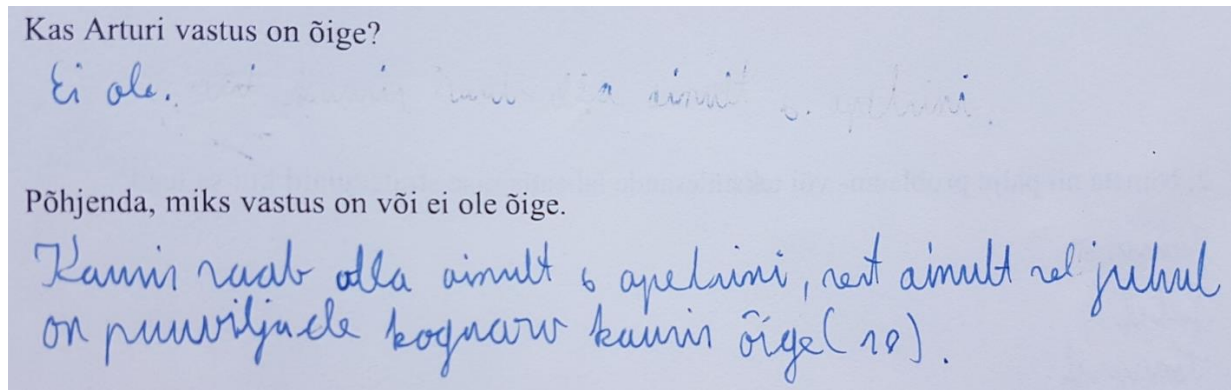 Kas Arturi vastus on õige?
Ei ole.
Põhjenda, miks vastus on või ei ole õige.
Kausis saab olla ainult 6 apelsini, sest ainult sel juhul
on puuviljade koguarv kausis õige (18).